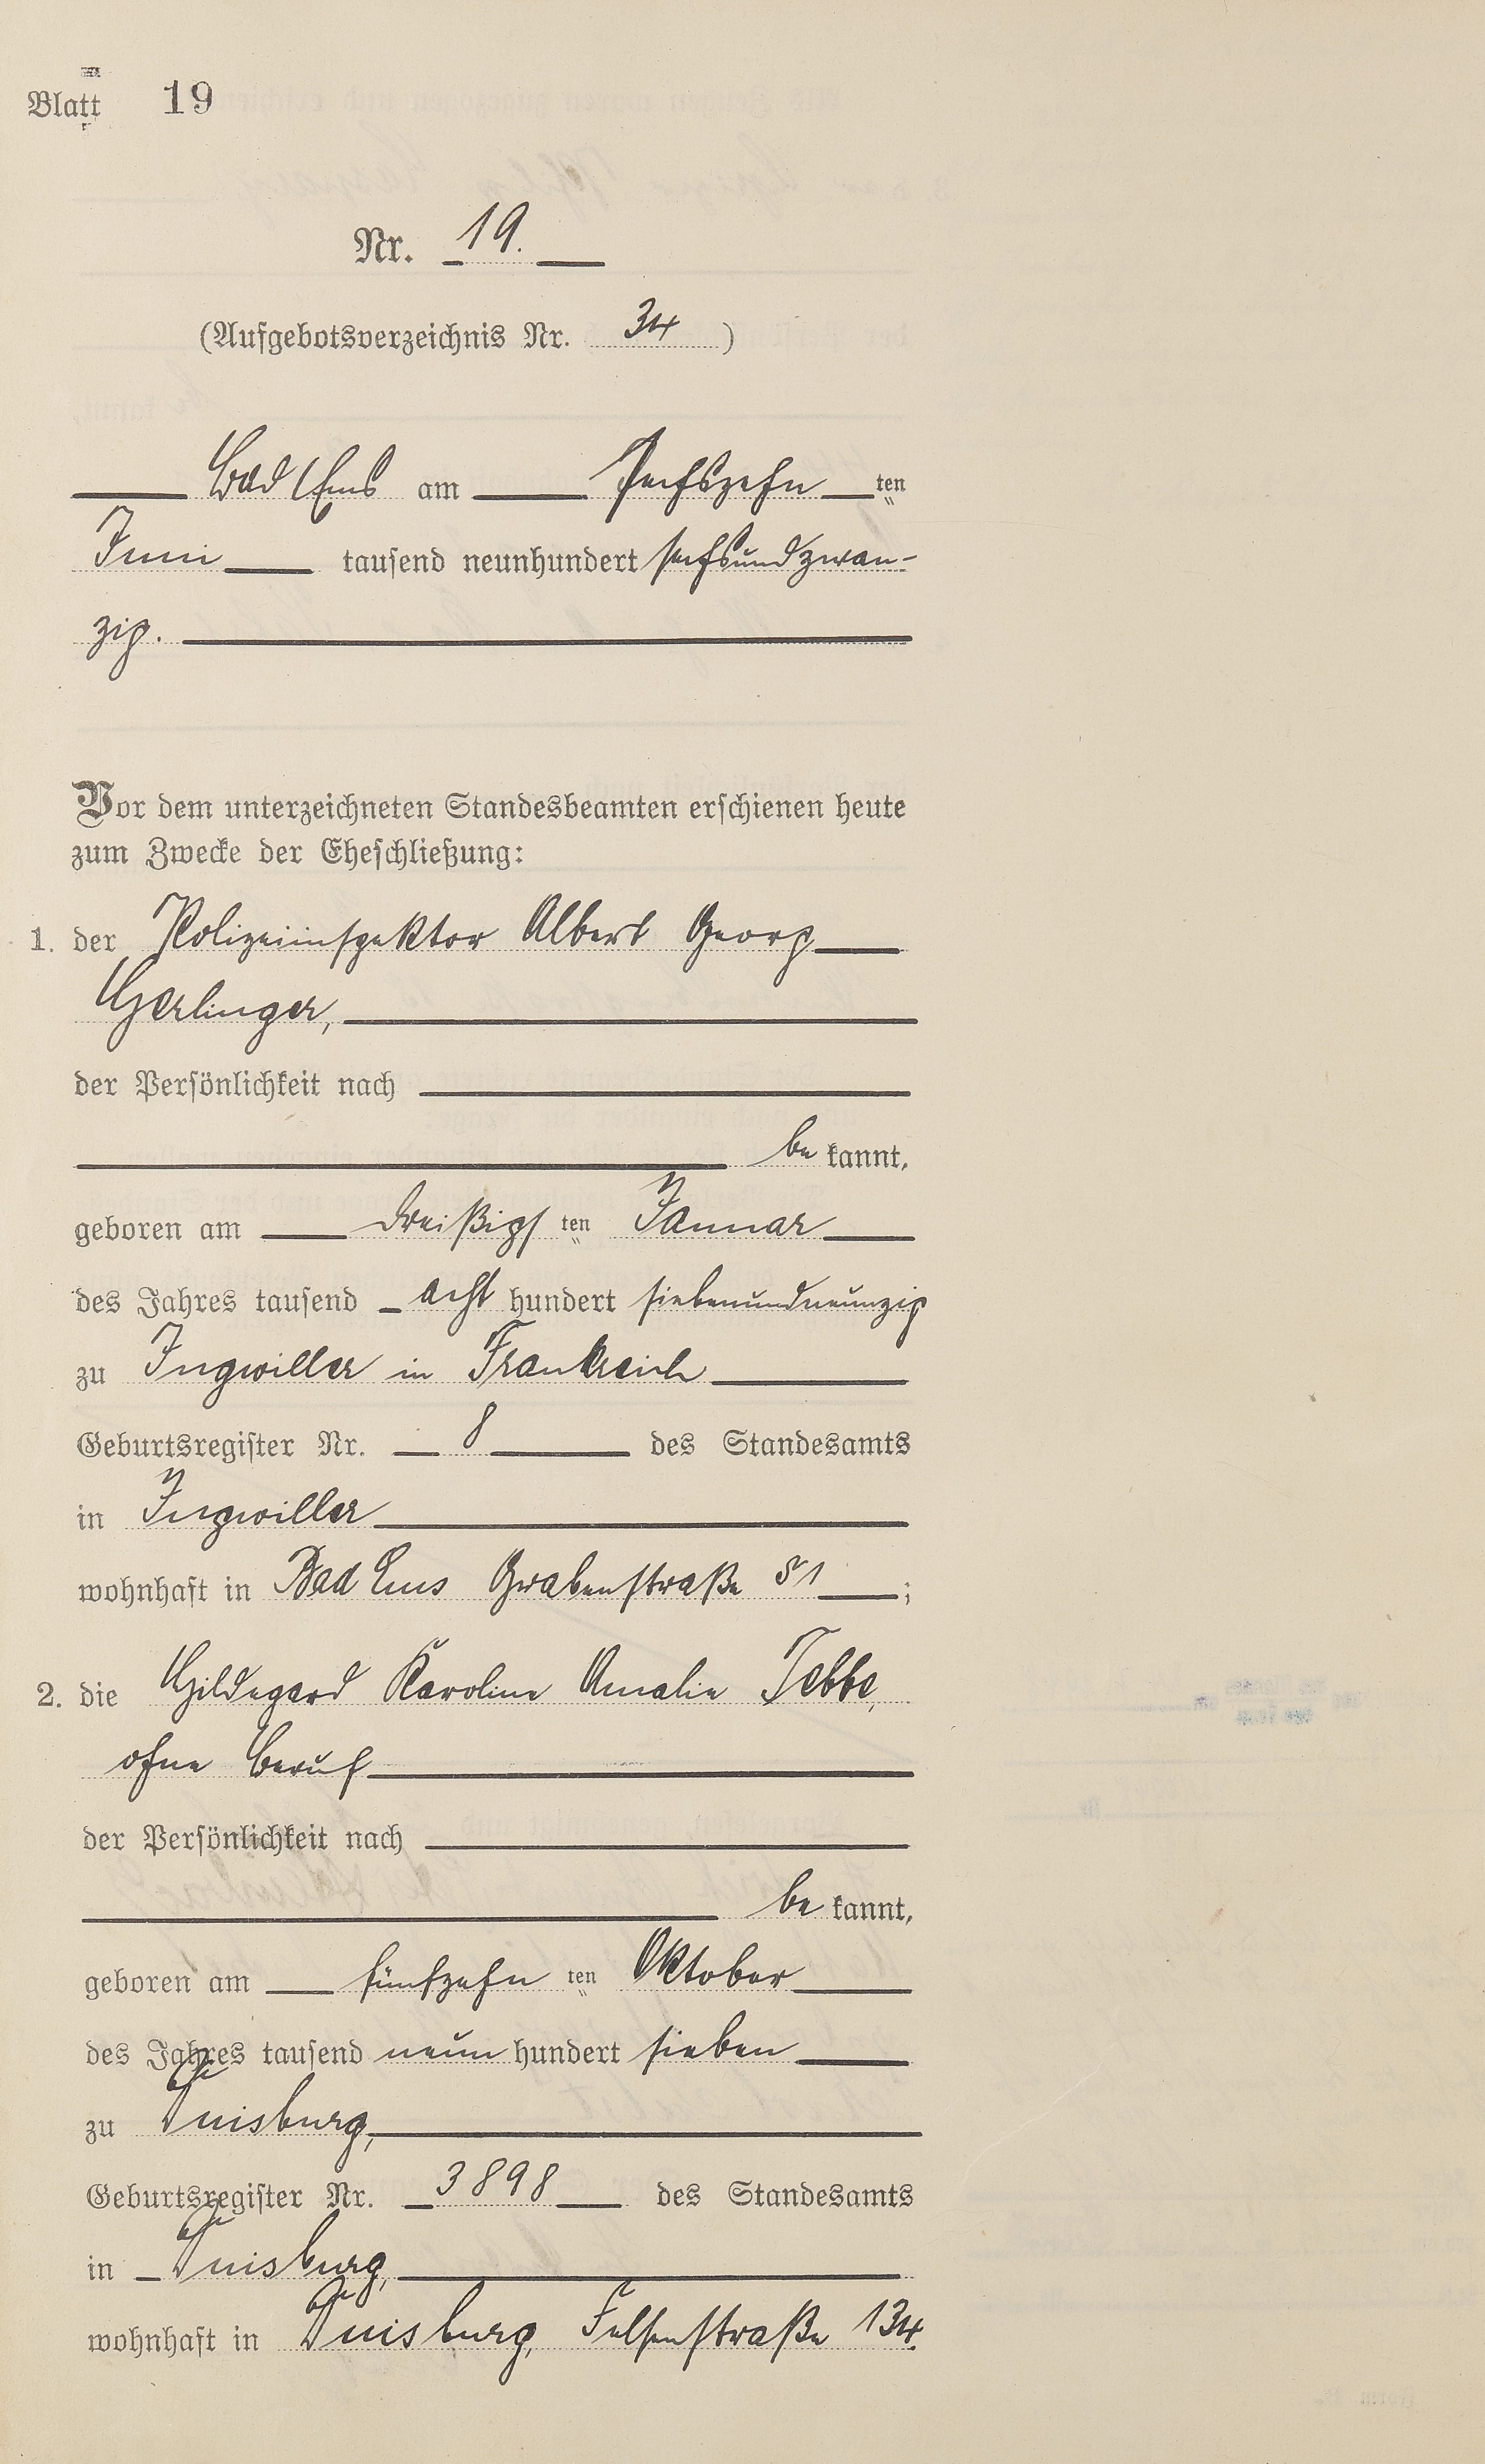 Blatt 19
Nr. 19.
(Aufgebotsverzeichnis Nr. 34)
Bad Ems am Sechszehn ten
Juni tausend neunhundert sechsundzwan-
zig.
Vor dem unterzeichneten Standesbeamten erschienen heute
zum Zwecke der Eheschließung:
1. der Polizeiinspektor Albert Georg
Gerlinger,
der Persönlichkeit nach
be kannt,
geboren am dreißigs ten Januar
des Jahres tausend acht hundert siebenundneunzig
zu Ingwiller in Frankreich
Geburtsregister Nr. 8 des Standesamts
in Ingwiller
wohnhaft in Bad Ems Grabenstraße 51;
2. die Hildegard Karoline Amalie Tebbe,
ohne Beruf
der Persönlichkeit nach
be kannt,
geboren am fünfzehn ten Oktober
des Jahres tausend neun hundert sieben
zu Duisburg,
Geburtsregister Nr. 3898 des Standesamts
in Duisburg,
wohnhaft in Duisburg, Felsenstraße 134.